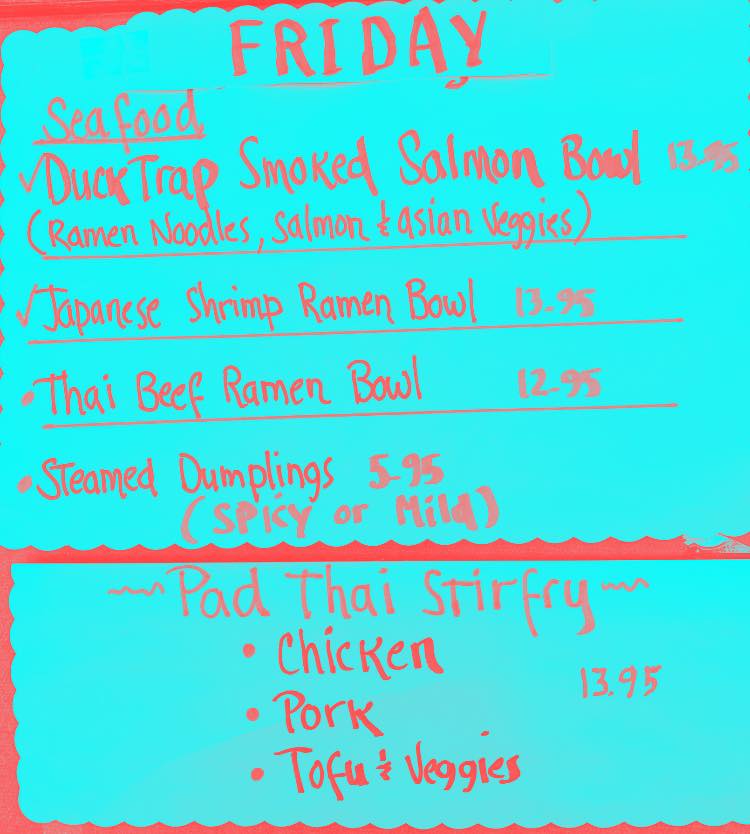 FRIDAY
Seafood
✓DuckTrap Smoked Salmon Bowl 13.95
(Ramen Noodles, Salmon & asian Veggies)
✓Japanese Shrimp Ramen Bowl 13-95
• Thai Beef Ramen Bowl 12-95
• Steamed Dumplings 5-95
(SPICY or Mild)
~~Pad Thai Stirfry~~
• Chicken
13.95
• Pork
• Tofu & Veggies